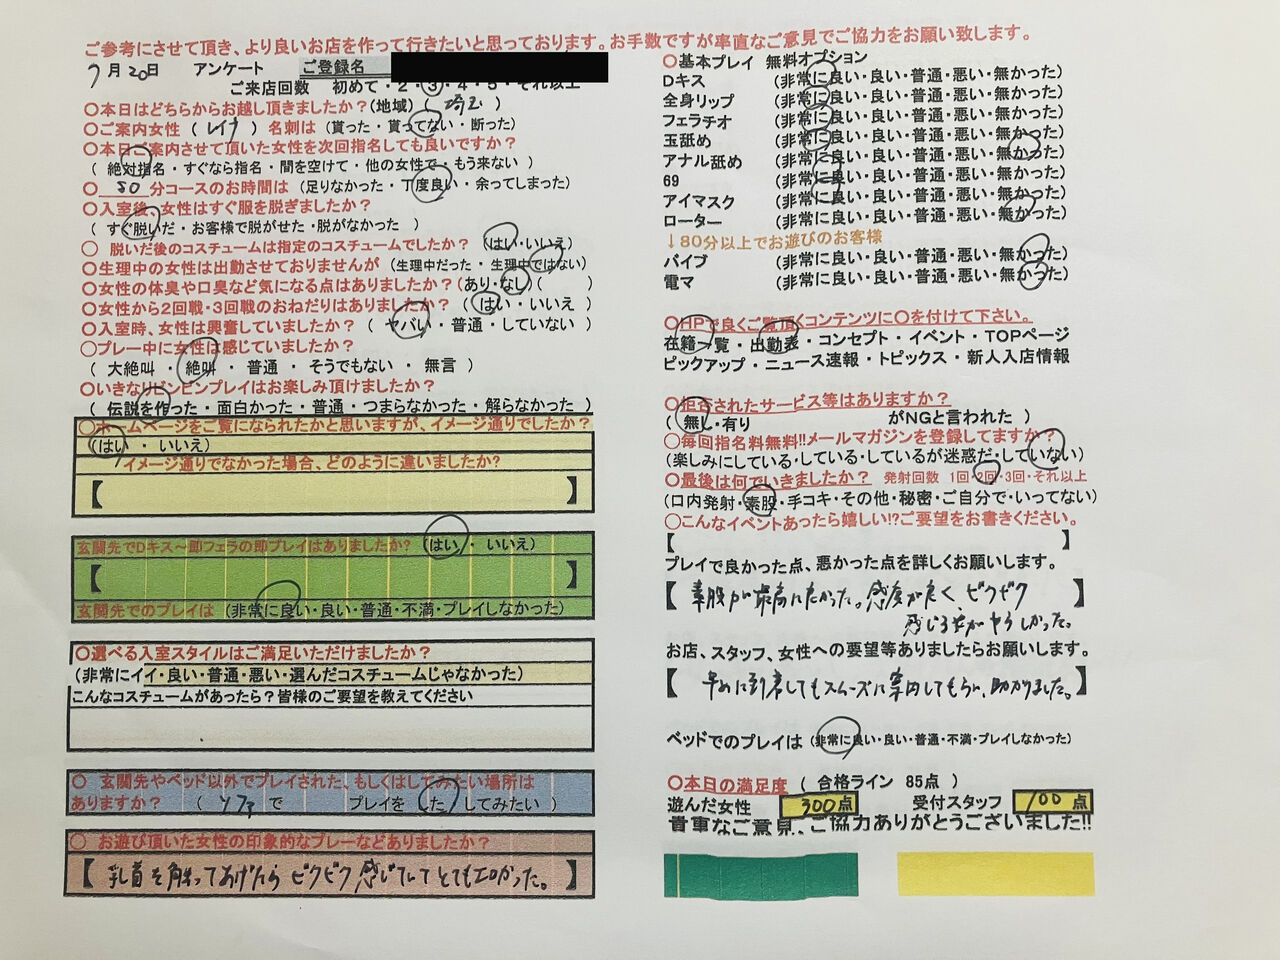 ご参考にさせて頂き、より良いお店を作って行きたいと思っております。お手数ですが率直なご意見でご協力をお願い致します。
7月20日 アンケート ご登録名
ご来店回数 初めて・2・3・4・5・それ以上
〇本日はどちらからお越し頂きましたか?(地域)( 埼玉 )
〇ご案内女性 ( レイナ ) 名刺は (貰った・貰ってない・断った)
〇本日ご案内させて頂いた女性を次回指名しても良いですか?
( 絶対指名・すぐなら指名・間を空けて・他の女性で・もう来ない )
〇 80 分コースのお時間は (足りなかった・丁度良い・余ってしまった)
〇入室後、女性はすぐ服を脱ぎましたか?
( すぐ脱いだ・お客様で脱がせた・脱がなかった )
〇 脱いだ後のコスチュームは指定のコスチュームでしたか? (はい・いいえ)
〇生理中の女性は出勤させておりませんが (生理中だった・生理中ではない)
〇女性の体臭や口臭など気になる点はありましたか?(あり・なし)( )
〇女性から2回戦・3回戦のおねだりはありましたか? ( はい・いいえ )
〇入室時、女性は興奮していましたか? ( ヤバい・普通・していない )
〇プレー中に女性は感じていましたか?
( 大絶叫 ・ 絶叫 ・ 普通 ・ そうでもない ・ 無言 )
〇いきなりビンビンプレイはお楽しみ頂けましたか?
( 伝説を作った・面白かった・普通・つまらなかった・解らなかった )
〇ホームページをご覧になられたかと思いますが、イメージ通りでしたか?
(はい ・ いいえ)
イメージ通りでなかった場合、どのように違いましたか?
【 】
玄関先でDキス〜即フェラの即プレイはありましたか? (はい ・ いいえ)
【 】
玄関先でのプレイは (非常に良い・良い・普通・不満・プレイしなかった)
〇選べる入室スタイルはご満足いただけましたか?
(非常にイイ・良い・普通・悪い・選んだコスチュームじゃなかった)
こんなコスチュームがあったら?皆様のご要望を教えてください
〇 玄関先やベッド以外でプレイされた、もしくはしてみたい場所は
ありますか? ( ソファ で プレイを した ・ してみたい )
〇 お遊び頂いた女性の印象的なプレーなどありましたか?
【 乳首を触ってあげたらビクビク感じていてとてもエロかった。 】
〇基本プレイ 無料オプション
Dキス (非常に良い・良い・普通・悪い・無かった)
全身リップ (非常に良い・良い・普通・悪い・無かった)
フェラチオ (非常に良い・良い・普通・悪い・無かった)
玉舐め (非常に良い・良い・普通・悪い・無かった)
アナル舐め (非常に良い・良い・普通・悪い・無かった)
69 (非常に良い・良い・普通・悪い・無かった)
アイマスク (非常に良い・良い・普通・悪い・無かった)
ローター (非常に良い・良い・普通・悪い・無かった)
↓80分以上でお遊びのお客様
バイブ (非常に良い・良い・普通・悪い・無かった)
電マ (非常に良い・良い・普通・悪い・無かった)
〇HPで良くご覧頂くコンテンツに〇を付けて下さい。
在籍一覧・出勤表・コンセプト・イベント・TOPページ
ピックアップ・ニュース速報・トピックス・新人入店情報
〇拒否されたサービス等はありますか?
( 無し・有り がNGと言われた )
〇毎回指名料無料!!メールマガジンを登録してますか?
(楽しみにしている・している・しているが迷惑だ・していない)
〇最後は何でいきましたか? 発射回数 1回・2回・3回・それ以上
(口内発射・素股・手コキ・その他・秘密・ご自分で・いってない)
〇こんなイベントあったら嬉しい!?ご要望をお書きください。
【 】
プレイで良かった点、悪かった点を詳しくお願いします。
【 素股が最高によかった。感度が良く、ビクビク 】
感じる姿がやらしかった。
お店、スタッフ、女性への要望等ありましたらお願いします。
【 早めに到着してもスムーズに案内してもらい、助かりました。 】
ベッドでのプレイは (非常に良い・良い・普通・不満・プレイしなかった)
〇本日の満足度 ( 合格ライン 85点 )
遊んだ女性 300点 受付スタッフ 100点
貴重なご意見、ご協力ありがとうございました!!